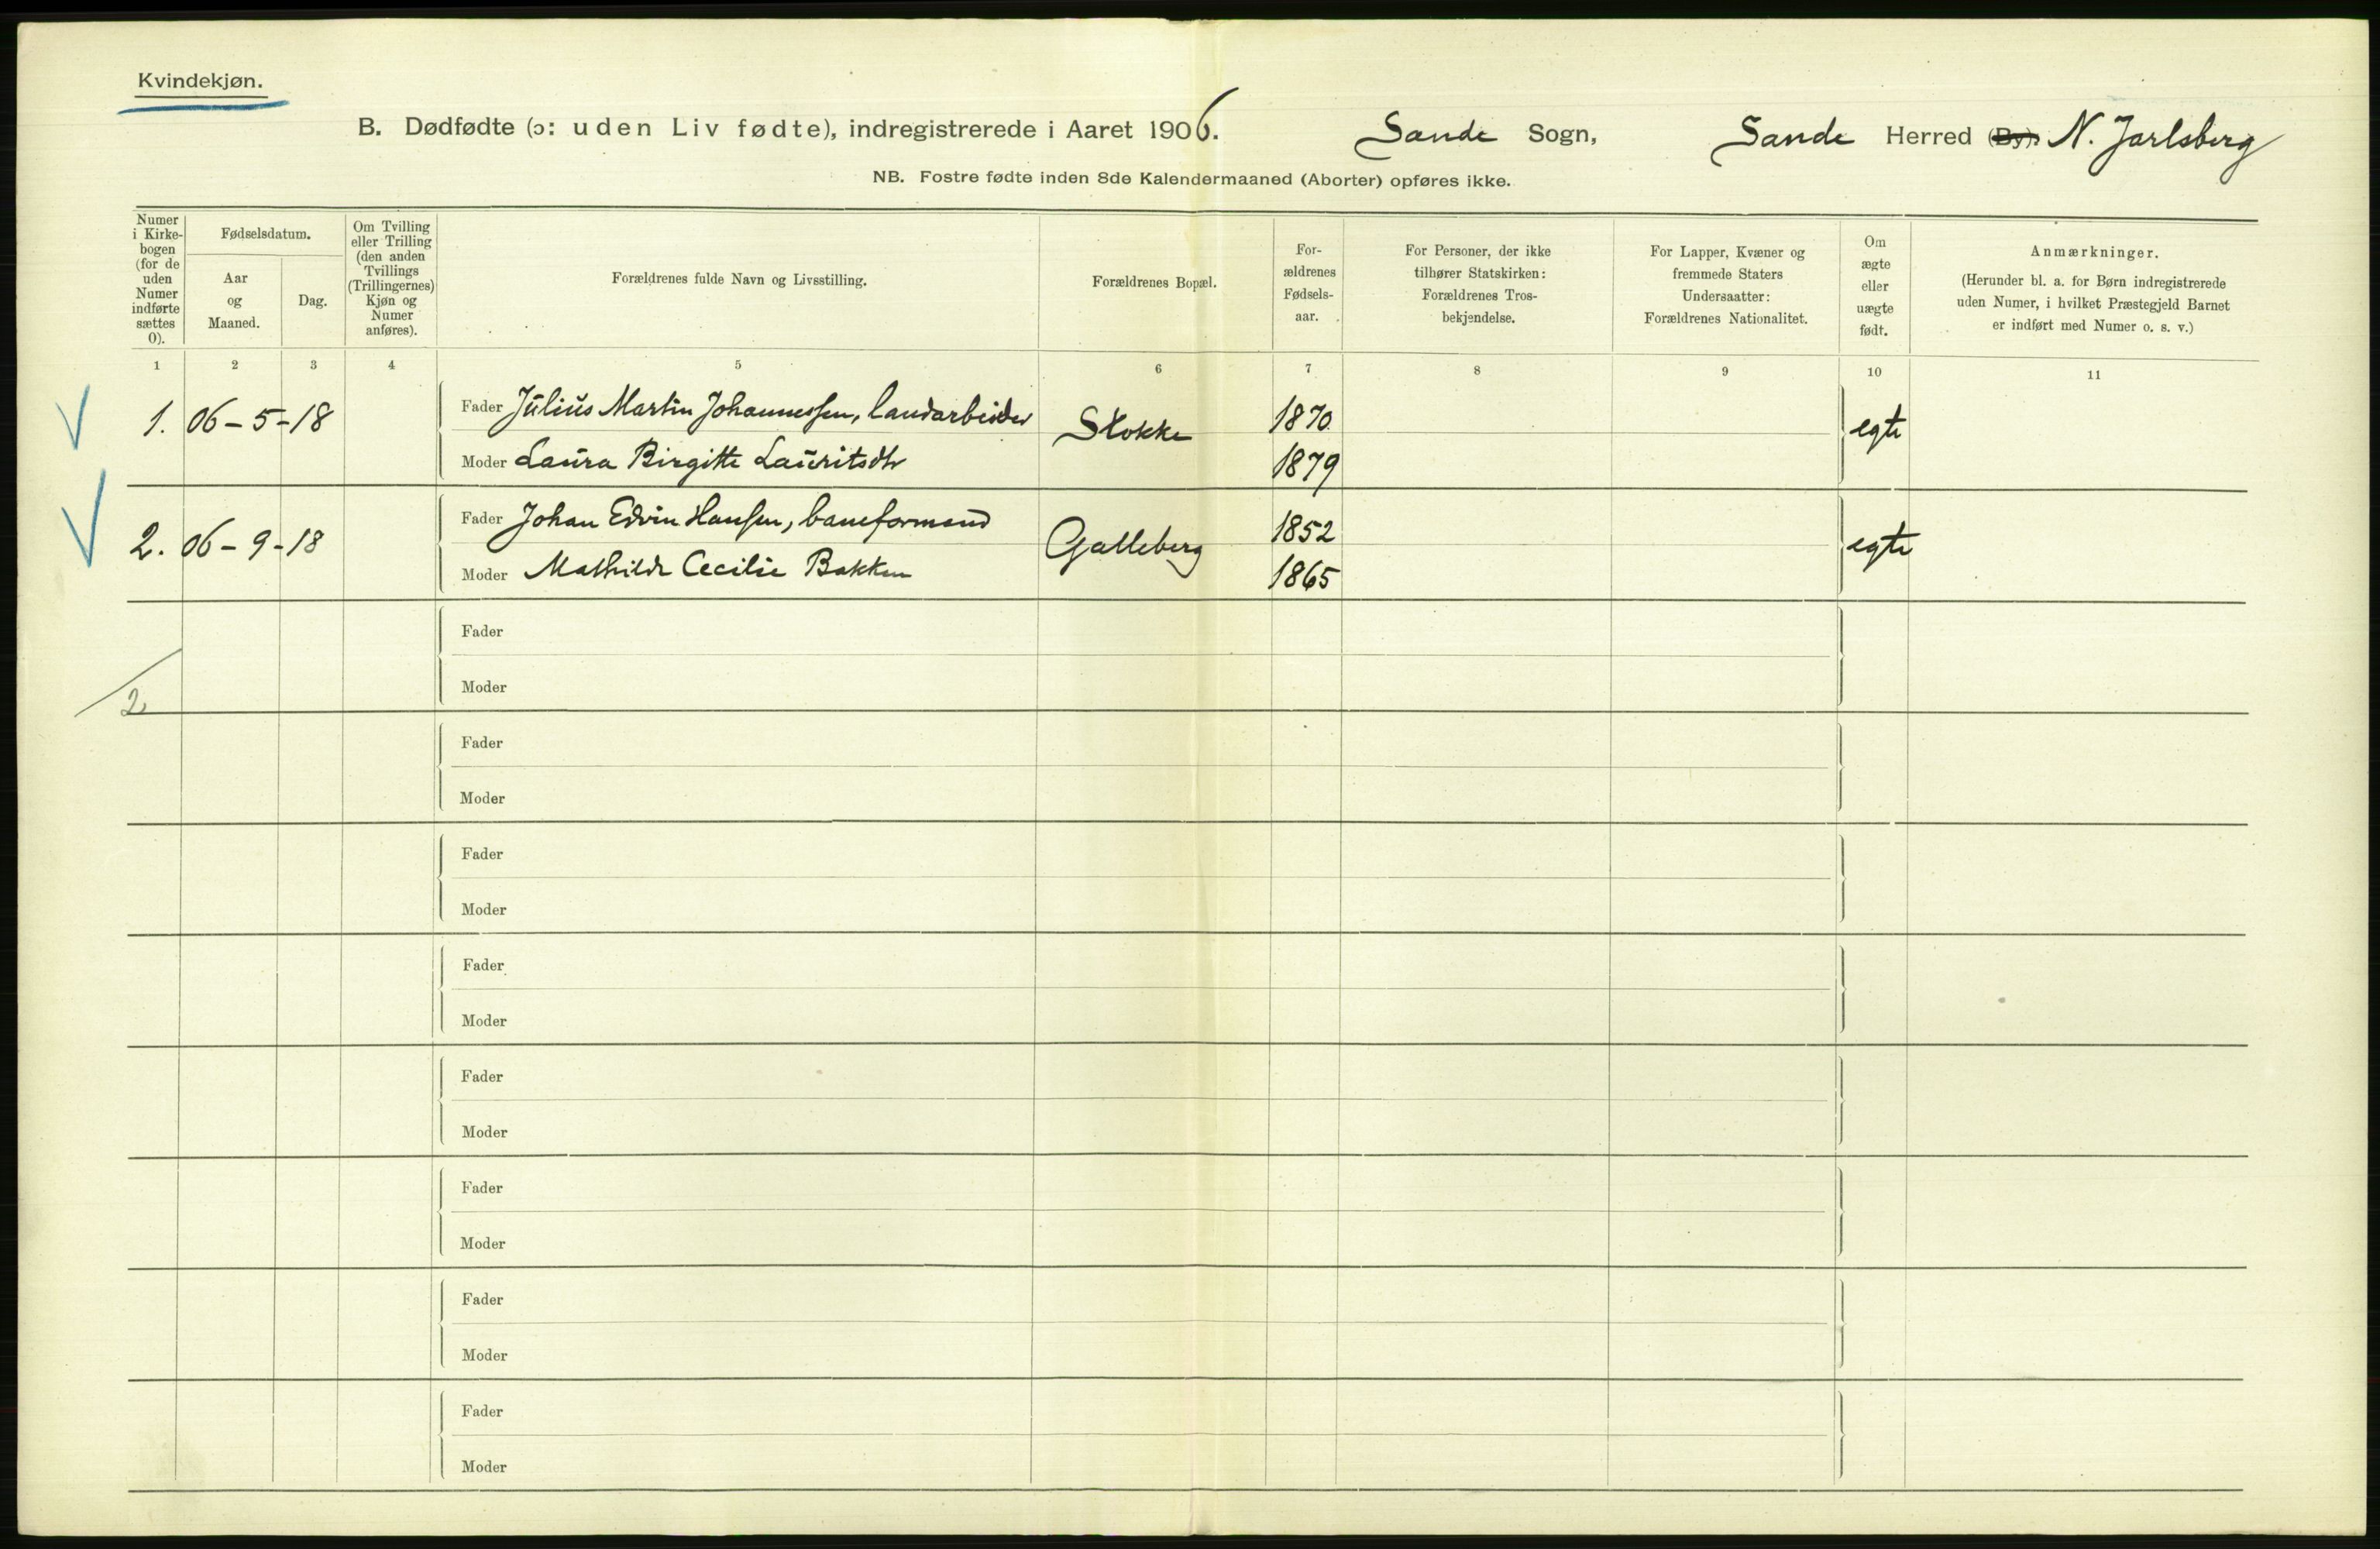 Kvindekjøn.
B. Dødfødte (ɔ: uden Liv fødte), indregistrerede i Aaret 1906. Sande Sogn, Sande Herred (By). N. Jarlsberg
NB. Fostre fødte inden 8de Kalendermaaned (Aborter) opføres ikke.
Numer
i Kirke-
bogen
(for de
uden
Numer
indførte
sættes
0).
Fødselsdatum.
Aar
og
Maaned.
Dag.
Om Tvilling
eller Trilling
(den anden
Tvillings
(Trillingernes)
Kjøn og
Numer
anføres).
Forældrenes fulde Navn og Livsstilling.
Forældrenes Bopæl.
For-
ældrenes
Fødsels-
aar.
For Personer, der ikke
tilhører Statskirken:
Forældrenes Tros-
bekjendelse.
For Lapper, Kvæner og
fremmede Staters
Undersaatter:
Forældrenes Nationalitet.
Om
ægte
eller
uægte
født.
Anmærkninger.
(Herunder bl. a. for Børn indregistrerede
uden Numer, i hvilket Præstegjeld Barnet
er indført med Numer o. s. v.)
1 2 3 4 5 6 7 8 9 10 11
1. 06-5-18 Fader Julius Martin Johannessen, landarbeider Stokke 1870 egte
Moder Laura Birgitte Lauritsdtr 1879
2. 06-9-18 Fader Johan Edvin Hansen, baneformand Galleberg 1852 egte
Moder Mathilde Cecilie Bakken 1865
Fader
2 Moder
Fader
Moder
Fader
Moder
Fader
Moder
Fader
Moder
Fader
Moder
Fader
Moder
Fader
Moder